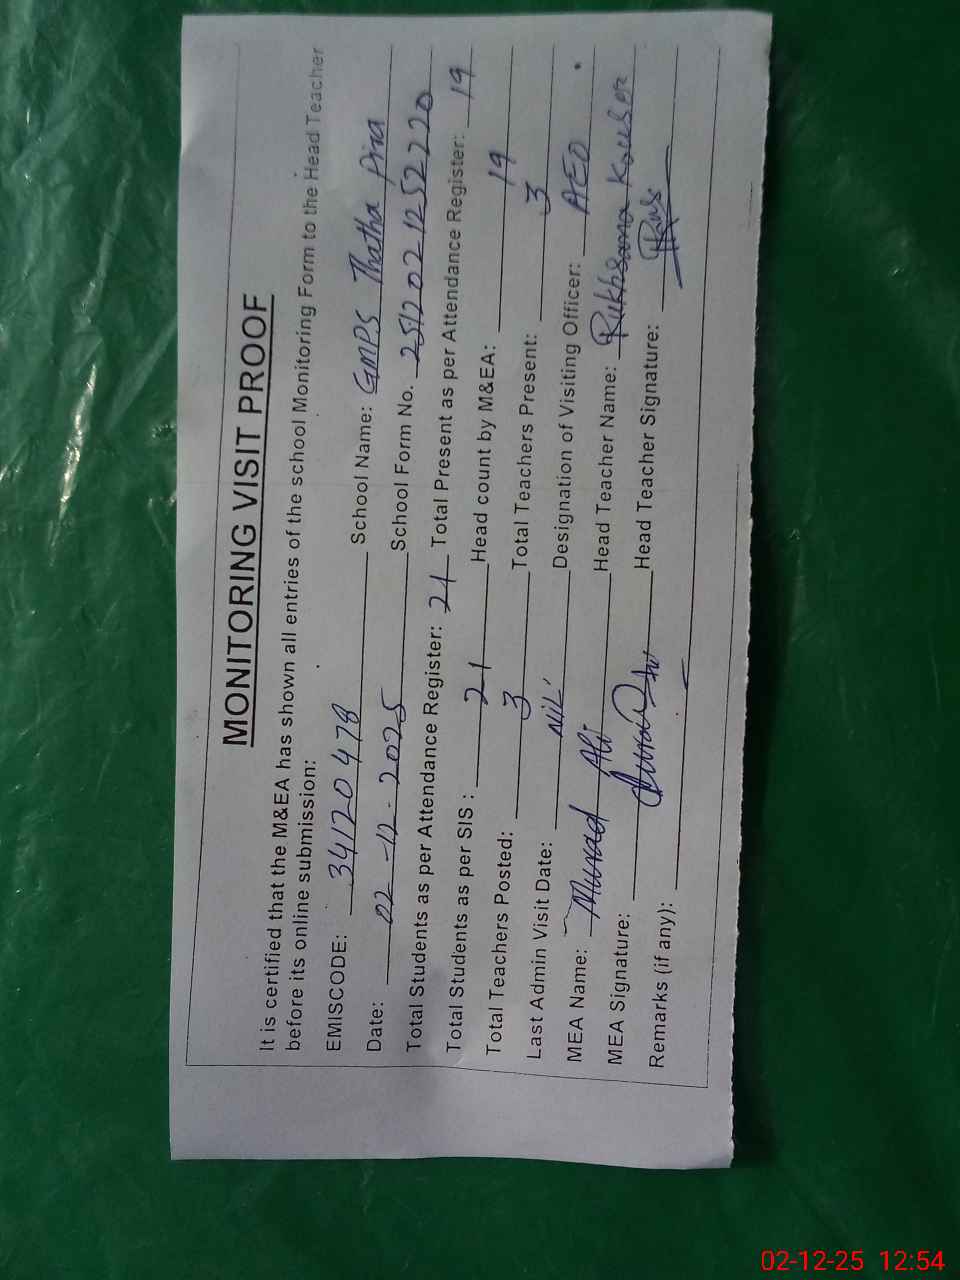 MONITORING VISIT PROOF
It is certified that the M&EA has shown all entries of the school Monitoring Form to the Head Teacher
before its online submission:
EMISCODE: 34120478 School Name: GMPS Thatha Pira
Date: 02-12-2025 School Form No. 251202125 2220
Total Students as per Attendance Register: 21 Total Present as per Attendance Register: 19
Total Students as per SIS : 21 Head count by M&EA: 19
Total Teachers Posted: 3 Total Teachers Present: 3
Last Admin Visit Date: Nil Designation of Visiting Officer: AEO
MEA Name: Murad Ali Head Teacher Name: Rukhsana Kouser
MEA Signature: Head Teacher Signature:
Remarks (if any):
02-12-25 12:54